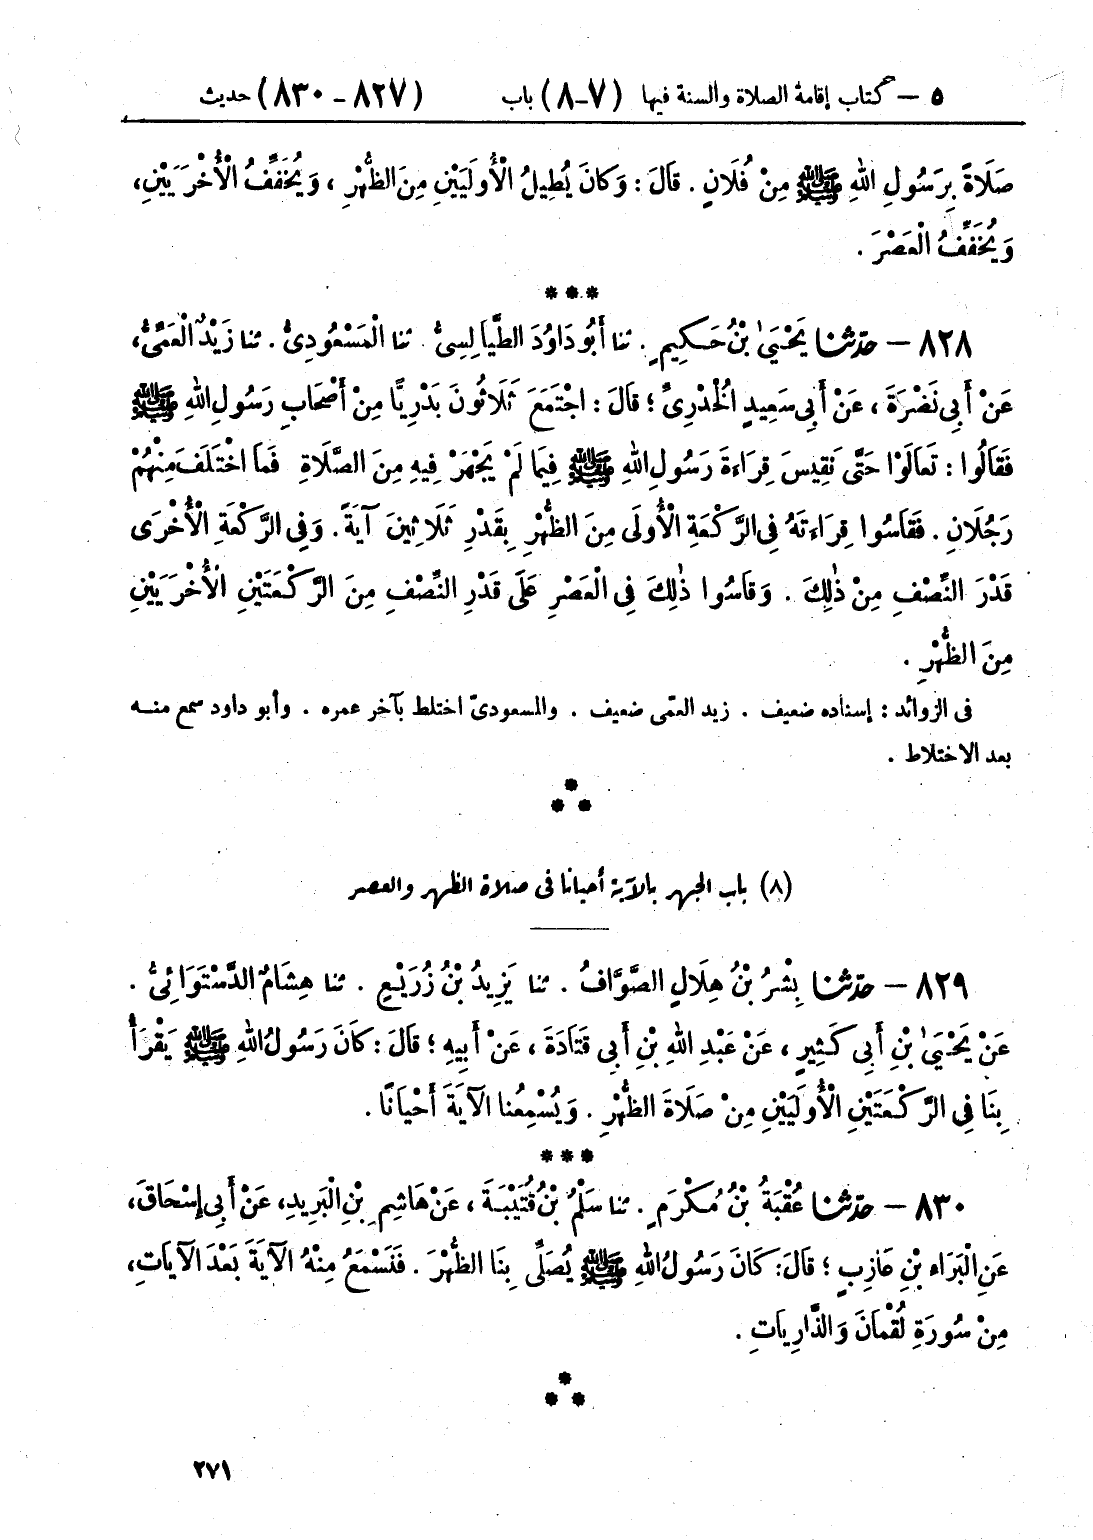 ٥ – كتاب إقامة الصلاة والسنة فيها (٧-٨) باب (٨٢٧-٨٣٠) حديث
صَلَاةً بِرَسُولِ اللهِ ﷺ مِنْ فُلَانٍ . قَالَ : وَكَانَ يُطِيلُ الْأُولَيَيْنِ مِنَ الظُّهْرِ ، وَيُخَفِّفُ الْأُخْرَيَيْنِ،
وَيُخَفِّفُ الْعَصْرَ .
***
٨٢٨ – حدّثنا يَحْيَىٰ بْنُ حَكِيمٍ . ثنا أَبُو دَاوُدَ الطَّيَالِسِىُّ . ثنا الْمَسْعُودِىُّ . ثنا زَيْدٌ الْعَمِّىُّ،
عَنْ أَبِى نَضْرَةَ ، عَنْ أَبِى سَعِيدٍ الْخُدْرِىِّ ؛ قَالَ : اجْتَمَعَ ثَلَاثُونَ بَدْرِيًّا مِنْ أَصْحَابِ رَسُولِ اللهِ ﷺ
فَقَالُوا : تَعَالَوْا حَتَّى نَقِيسَ قِرَاءَةَ رَسُولِ اللهِ ﷺ فِيمَا لَمْ يَجْهَرْ فِيهِ مِنَ الصَّلَاةِ فَمَا اخْتَلَفَ مِنْهُمْ
رَجُلَانِ . فَقَاسُوا قِرَاءَتَهُ فِى الرَّكْعَةِ الْأُولَى مِنَ الظُّهْرِ بِقَدْرِ ثَلَاثِينَ آيَةً . وَفِى الرَّكْعَةِ الْأُخْرَى
قَدْرَ النِّصْفِ مِنْ ذٰلِكَ . وَقَاسُوا ذٰلِكَ فِى الْعَصْرِ عَلَى قَدْرِ النِّصْفِ مِنَ الرَّكْعَتَيْنِ الْأُخْرَيَيْنِ
مِنَ الظُّهْرِ .
فى الزوائد : إسناده ضعيف . زيد العمّى ضعيف . والمسعودىّ اختلط بآخر عمره . وأبو داود سمع منه
بعد الاختلاط .
*
* *
(٨) باب الجهر بالآية أحيانا فى صلاة الظهر والعصر
٨٢٩ – حدّثنا بِشْرُ بْنُ هِلَالٍ الصَّوَّافُ . ثنا يَزِيدُ بْنُ زُرَيْعٍ . ثنا هِشَامٌ الدَّسْتَوَائِىُّ .
عَنْ يَحْيَىٰ بْنِ أَبِى كَثِيرٍ ، عَنْ عَبْدِ اللهِ بْنِ أَبِى قَتَادَةَ ، عَنْ أَبِيهِ ؛ قَالَ : كَانَ رَسُولُ اللهِ ﷺ يَقْرَأُ
بِنَا فِى الرَّكْعَتَيْنِ الْأُولَيَيْنِ مِنْ صَلَاةِ الظُّهْرِ . وَيُسْمِعُنَا الْآيَةَ أَحْيَانًا .
***
٨٣٠ – حدّثنا عُقْبَةُ بْنُ مُكْرَمٍ . ثنا سَلْمُ بْنُ قُتَيْبَةَ ، عَنْ هَاشِمِ بْنِ الْبَرِيدِ، عَنْ أَبِى إِسْحَاقَ،
عَنِ الْبَرَاءِ بْنِ عَازِبٍ ؛ قَالَ: كَانَ رَسُولُ اللهِ ﷺ يُصَلِّى بِنَا الظُّهْرَ . فَنَسْمَعُ مِنْهُ الْآيَةَ بَعْدَ الْآيَاتِ،
مِنْ سُورَةِ لُقْمَانَ وَالذَّارِيَاتِ .
*
* *
٢٧١